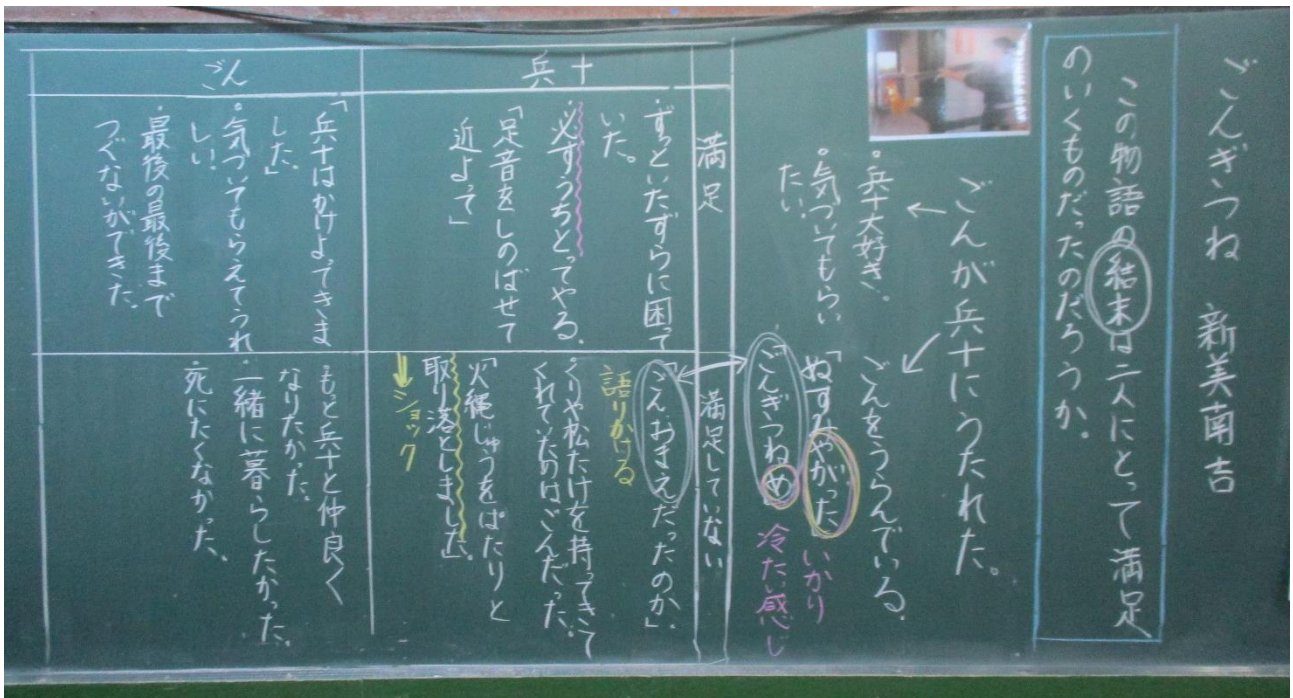 ごんぎつね 新美南吉
この物語の結末は二人にとって満足
のいくものだったのだろうか。
ごんが兵十にうたれた。
・兵十大好き。
・気づいてもらい
たい
ごんをうらんでいる。
「ぬすみやがった」
いかり
ごんぎつねめ
冷たい感じ
満足
満足していない
兵十
ずっといたずらに困って
いた。
・必ずうちとってやる。
「足音をしのばせて
近よって」
「ごんおまえだったのか」
語りかける
・くりや松たけを持ってきて
くれていたのはごんだった。
「火縄じゅうをばたりと
取り落としました」
ショック
ごん
「兵十はかけよってきま
した」
・気づいてもらえてうれ
しい!
・最後の最後まで
つぐないができた。
もっと兵十と仲良く
なりたかった。
・一緒に暮らしたかった。
死にたくなかった。